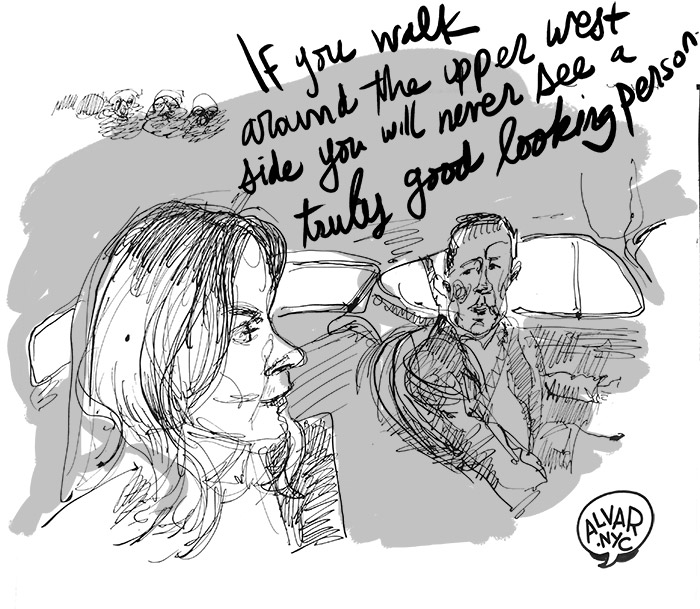 If you walk
around the upper west
side you will never see a
truly good looking person.
ALVAR
.NYC